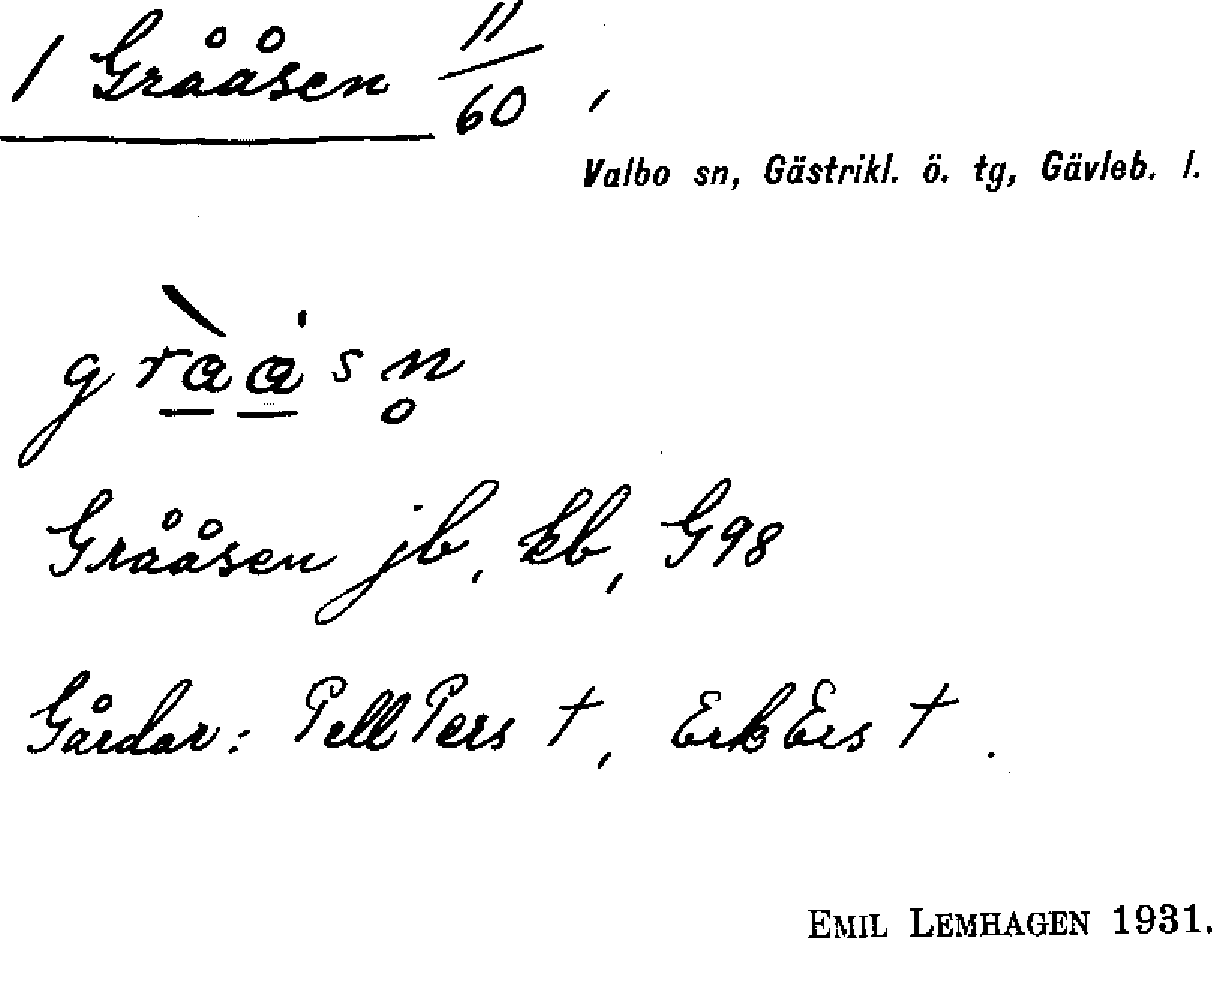 1 Grååsen 11/60,
Valbo sn, Gästrikl. ö. tg, Gävleb. l.
gràa̍sn̥
Grååsen jb, kb, G98
Gårdar: PellPers †, ErkErs †.
EMIL LEMHAGEN 1931.